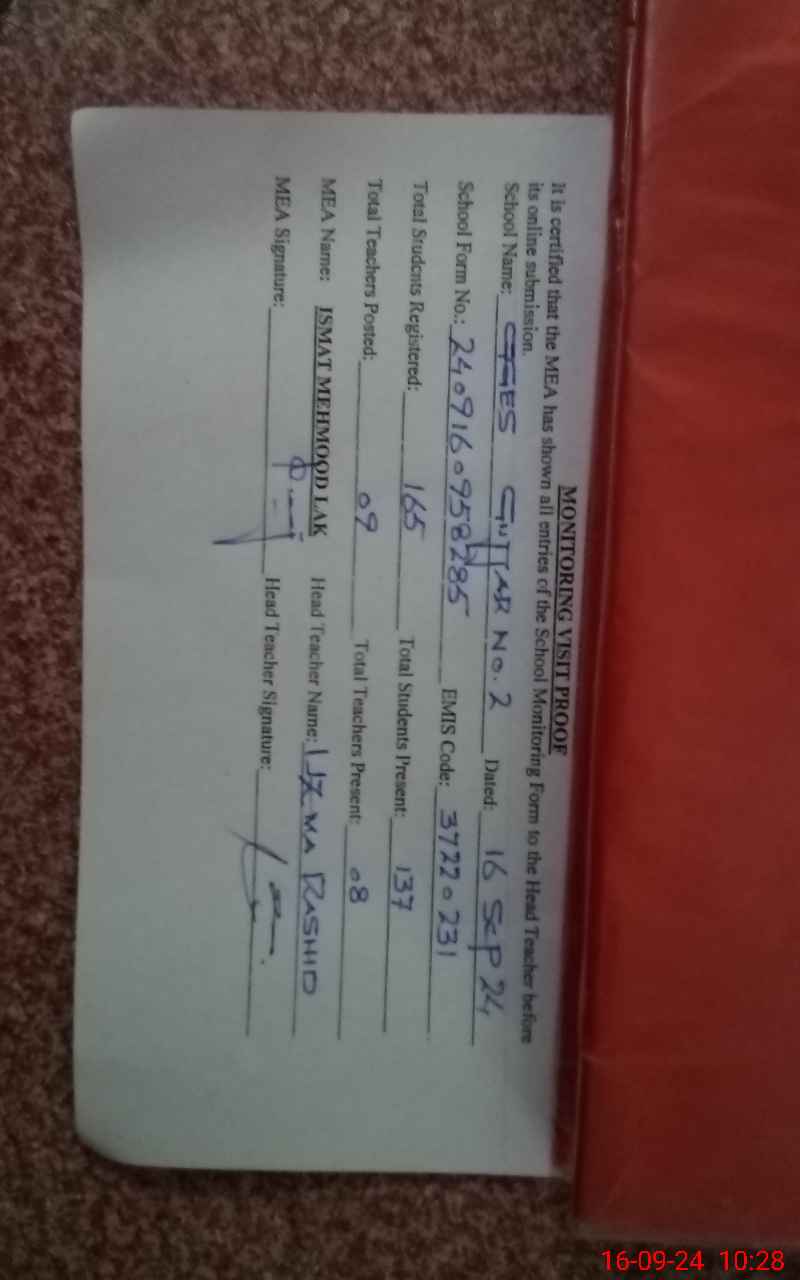 MONITORING VISIT PROOF
It is certified that the MEA has shown all entries of the School Monitoring Form to the Head Teacher before
its online submission.
School Name: GGES GUJJAR No. 2 Dated: 16 Sep 24
School Form No.: 2409160958285 EMIS Code: 37220231
Total Students Registered: 165 Total Students Present: 137
Total Teachers Posted: 09 Total Teachers Present: 08
MEA Name: ISMAT MEHMOOD LAK Head Teacher Name: UZMA RASHID
MEA Signature: Head Teacher Signature:
16-09-24 10:28